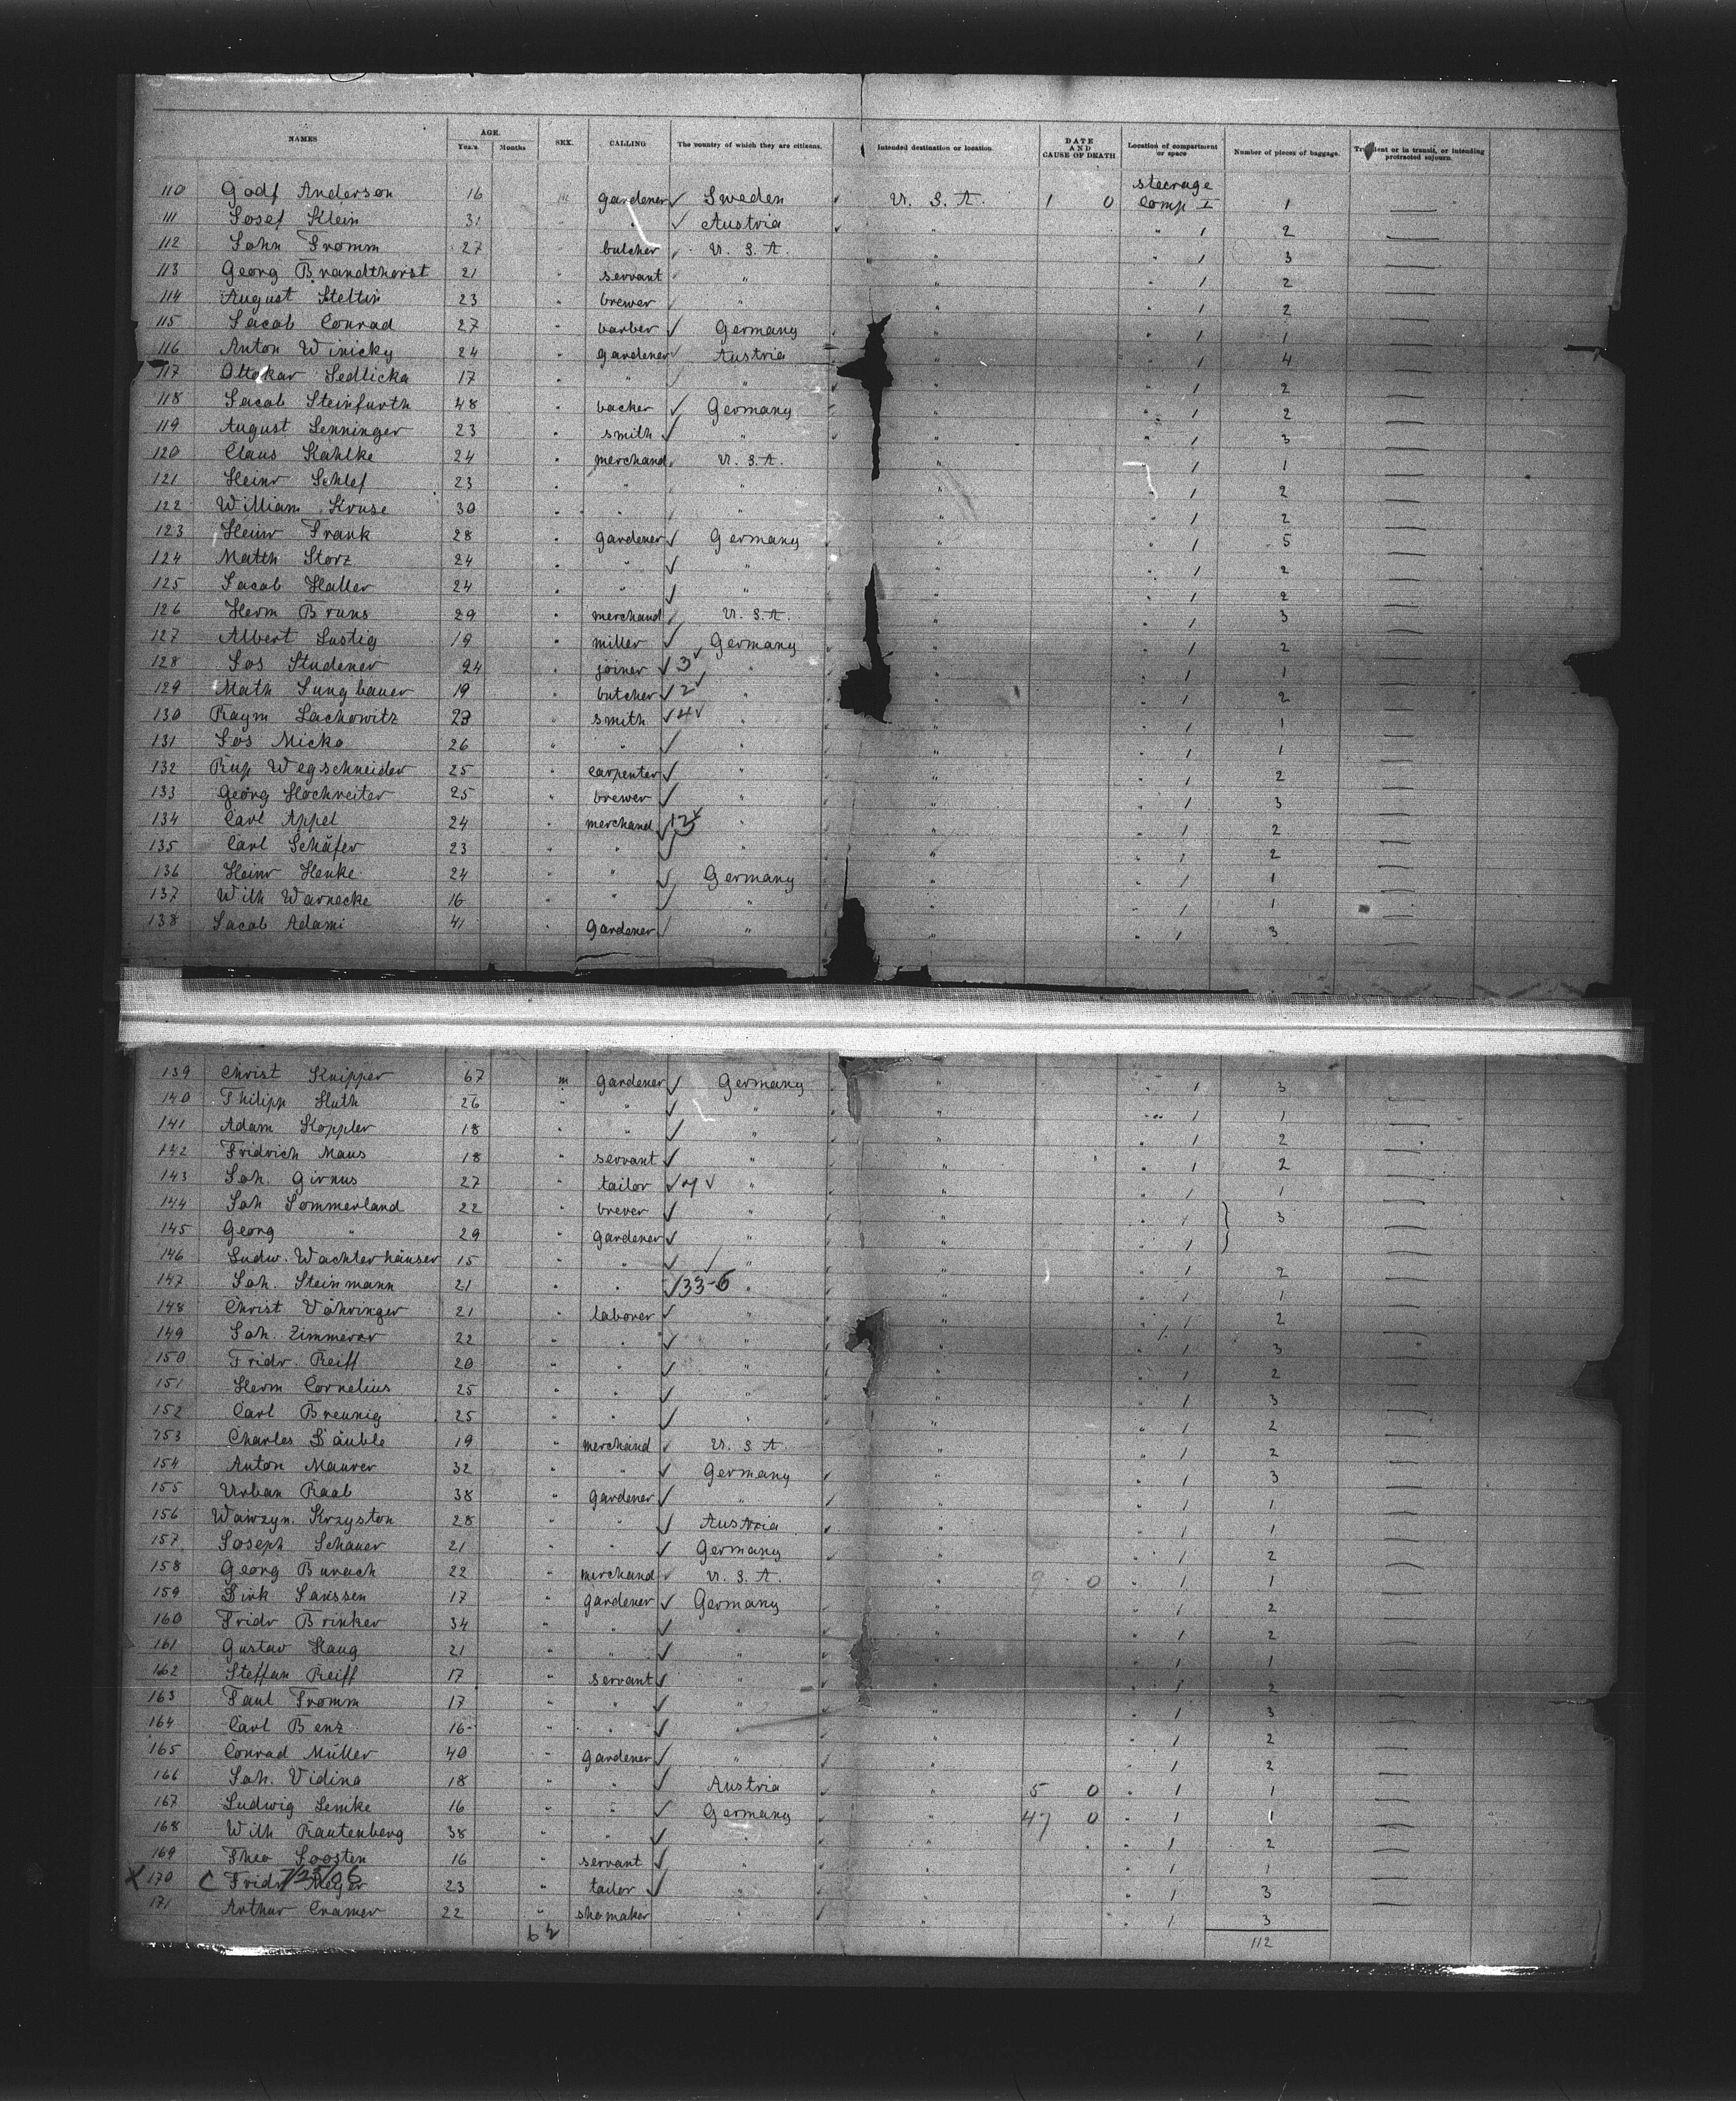 NAMES AGE. Years Months SEX. CALLING The country of which they are citizens. Intended destination or location. DATE AND CAUSE OF DEATH Location of compartment or space Number of pieces of baggage. Transient or in transit, or intending protracted sojourn.
110 Godf Anderson 16 m gardener ✓ Sweden U. S. A. 1 0 steerage Comp I 1 —
111 Josef Klein 31 " ✓ Austria " 1 2 —
112 John Fromm 27 butcher U. S. A. " " 1 3 —
113 Georg Brandthorst 21 " servant " " " 1 2 —
114 August Stettin 23 " brewer " " " 1 2 —
115 Jacob Conrad 27 " barber ✓ Germany " " 1 1 —
116 Anton Winicky 24 " gardener ✓ Austria " " 1 4 —
117 Ottokar Sedlicka 17 " " " " " 1 2 —
118 Jacob Steinfurth 48 " backer ✓ Germany " " 1 2 —
119 August Lenninger 23 " smith ✓ " " " 1 3 —
120 Claus Kahlke 24 " merchand U. S. A. " 1 1 —
121 Heinr Schlef 23 " " " " " 1 2 —
122 William Kruse 30 " " " " " 1 2 —
123 Heinr Frank 28 " gardener ✓ Germany " " 1 5 —
124 Matth Storz 24 " " ✓ " " " 1 2 —
125 Jacob Haller 24 " " ✓ " " " 1 2 —
126 Herm Bruns 29 " merchand U. S. A. " " 1 3 —
127 Albert Lustig 19 " miller ✓ Germany " " 1 2 —
128 Jos Studener 24 " joiner ✓ 3 ✓ " " " 1 1 —
129 Math Jungbauer 19 " butcher ✓ 2 ✓ " " " 1 2 —
130 Raym Lachowitz 23 " smith ✓ 4 ✓ " " " 1 1 —
131 Jos Micko 26 " " ✓ " " " 1 1 —
132 Rup Wegschneider 25 " carpenter ✓ " " " 1 2 —
133 Georg Hochreiter 25 " brewer ✓ " " " 1 3 —
134 Carl Appel 24 " merchand ✓ " " " 1 2 —
135 Carl Schäfer 23 " " ✓ " " " 1 2 —
136 Heinr Henke 24 " " ✓ Germany " " 1 1 —
137 Wilh Warnecke 16 " " ✓ " " " 1 1 —
138 Jacob Adami 41 " gardener ✓ " " " 1 3 —
139 Christ Knipper 67 m gardener ✓ Germany " " 1 3 —
140 Philipp Huth 26 " " ✓ " " " 1 1 —
141 Adam Koppler 18 " " ✓ " " " 1 2 —
142 Fridrich Maus 18 " servant ✓ " " " 1 2 —
143 Joh. Girnus 27 " tailor ✓ " " " 1 1 —
144 Joh Sommerland 22 " brever ✓ " " " 1 } 3 —
145 Georg " 29 " gardener ✓ " " " 1 —
146 Ludw. Wachterhäuser 15 " " ✓ " " " 1 2 —
147 Joh. Steinmann 21 " " ✓ 33-6 " " " 1 1 —
148 Christ Vöhringer 21 " laborer ✓ " " " 1 2 —
149 Joh. Zimmerer 22 " " ✓ " " " 1 3 —
150 Fridr. Reiff 20 " " ✓ " " " 1 2 —
151 Herm Cornelius 25 " " ✓ " " " 1 3 —
152 Carl Breunig 25 " " ✓ " " " 1 2 —
153 Charles Däuble 19 " merchand U. S. A. " " 1 2 —
154 Anton Maurer 32 " " ✓ Germany " " 1 3 —
155 Urban Raab 38 " gardener ✓ " " " 1 1 —
156 Wawrzyn. Krzyston 28 " " ✓ Austria " " 1 1 —
157 Joseph Schauer 21 " " ✓ Germany " " 1 2 —
158 Georg Burach 22 " merchand U. S. A. 9 0 " 1 1 —
159 Dirk Janssen 17 " gardener ✓ Germany " 1 2 —
160 Fridr Brinker 34 " " ✓ " " 1 2 —
161 Gustav Haug 21 " " ✓ " " 1 1 —
162 Steffan Reiff 17 " servant ✓ " " 1 2 —
163 Paul Fromm 17 " " ✓ " " " 1 3 —
164 Carl Benz 16 " " ✓ " " " 1 2 —
165 Conrad Müller 40 " gardener ✓ " " " 1 2 —
166 Joh. Vidina 18 " " ✓ Austria " 5 0 " 1 1 —
167 Ludwig Lemke 16 " " ✓ Germany " 47 0 " 1 1 —
168 Wilh Rautenberg 38 " " ✓ " " " 1 2 —
169 Theo Joosten 16 " servant ✓ " " " 1 1 —
X 170 C Fridr Meyer 23 " tailor ✓ " " " 1 3 —
171 Arthur Cramer 22 " shomaker " " " 1 3
62 112